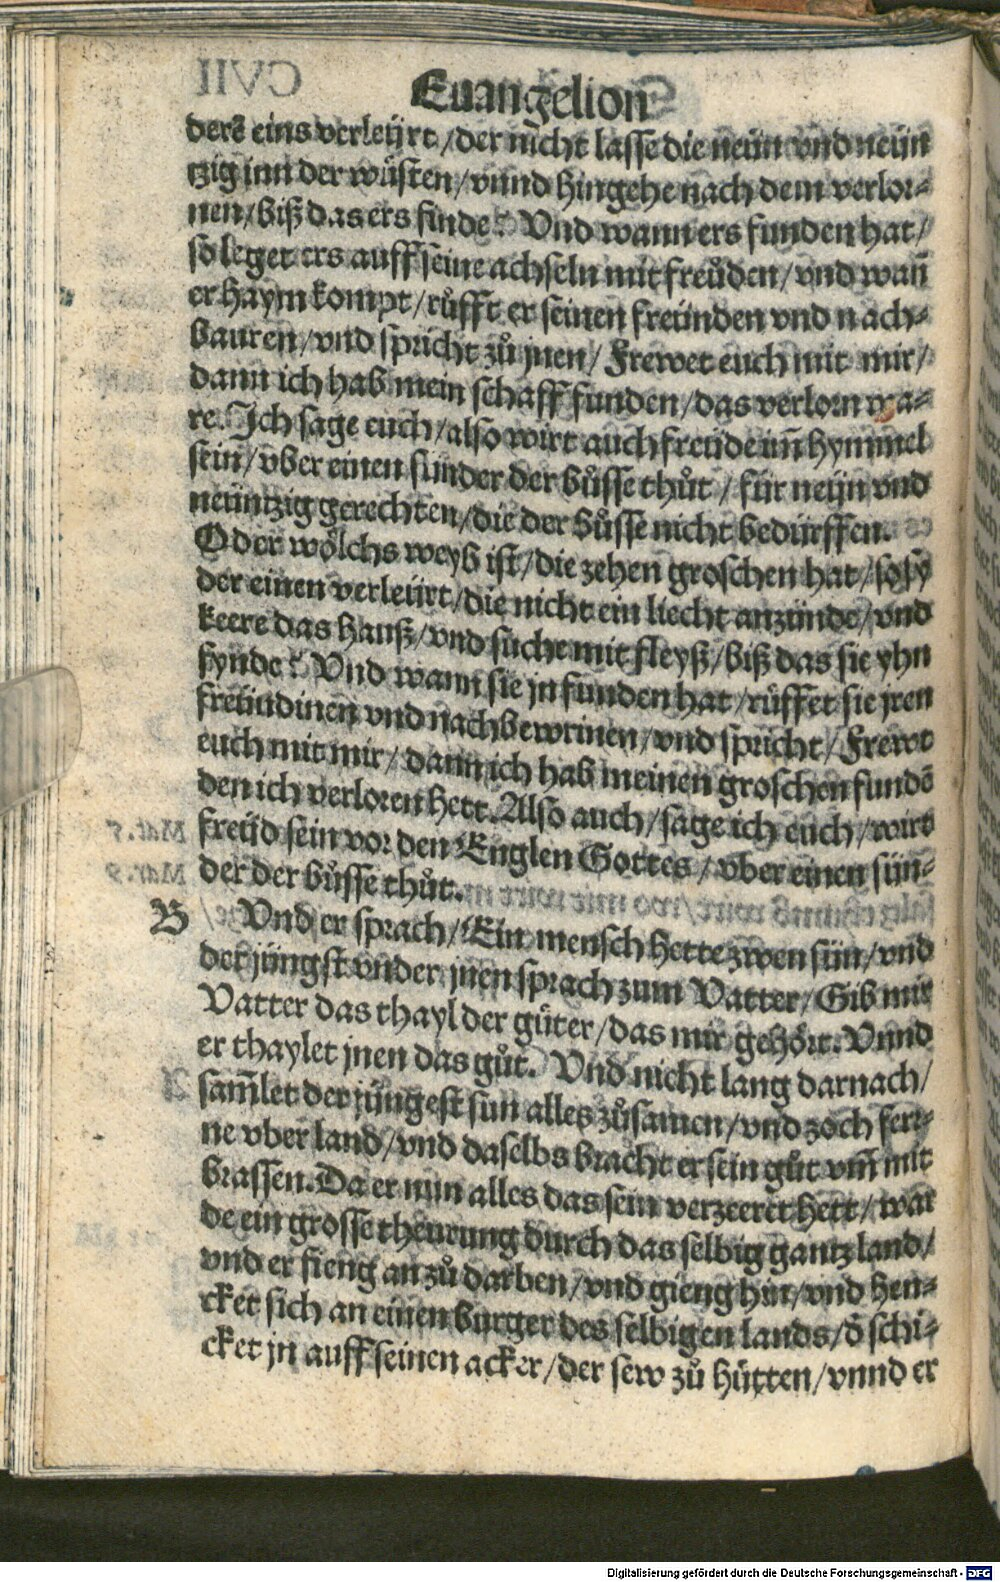 Euangelion
derẽ eins verleürt/der nicht lasse die neün vnd neün
tzig inn der wüsten/vnnd hingehe nach dem verlor-
nen/biß das ers finde? Vnd wann ers funden hat/
so leget ers auff seine achseln mit freüden/vnd wañ
er haym kompt/růfft er seinen freünden vnd nach-
bauren/vnd spricht zů jnen/ Frewet euch mit mir/
dann ich hab mein schaff funden/das verlorn wa-
re. Ich sage euch/also wirt auch freüde im̃ hymmel
sein/vber einen sünder der bůsse thůt/ für neün vnd
neüntzig gerechten/die der bůsse nicht bedürffen.
Oder wölchs weyb ist/die zehen groschen hat/so sy
der einen verleürt/die nicht ein liecht anzünde/vnd
keere das hauß/vnd suche mit fleyß/biß das sie yhn
fynde? Vnd wann sie jn funden hat/růffet sie jren
freündinen vnd nachbewrinen/vnd spricht/ Frewt
euch mit mir/ dann ich hab meinen groschen fundẽ
den ich verloren hett. Also auch/sage ich euch/wirt
freüd sein vor den Englen Gottes/vber einen sün-
der der bůsse thůt.
B Vnd er sprach/Ein mensch hette zwen sün/vnd
der jüngst vnder jnen sprach zum Vatter/Gib mir
Vatter das thayl der güter/das mir gehört. Vnnd
er thaylet jnen das gůt. Vnd nicht lang darnach/
sam̃let der jüngest sun alles zůsamen/vnd zoch fer-
ne vber land/vnd daselbs bracht er sein gůt vm̃ mit
brassen. Da er nun alles das sein verzeeret hett/war
de ein grosse theurung durch das selbig gantz land/
vnd er fieng an zů darben/vnd gieng hin/vnd hen-
cket sich an einen burger des selbigen lands/d̄ schi-
cket jn auff seinen acker/der sew zů hütten/vnnd er
Digitalisierung gefördert durch die Deutsche Forschungsgemeinschaft - DFG